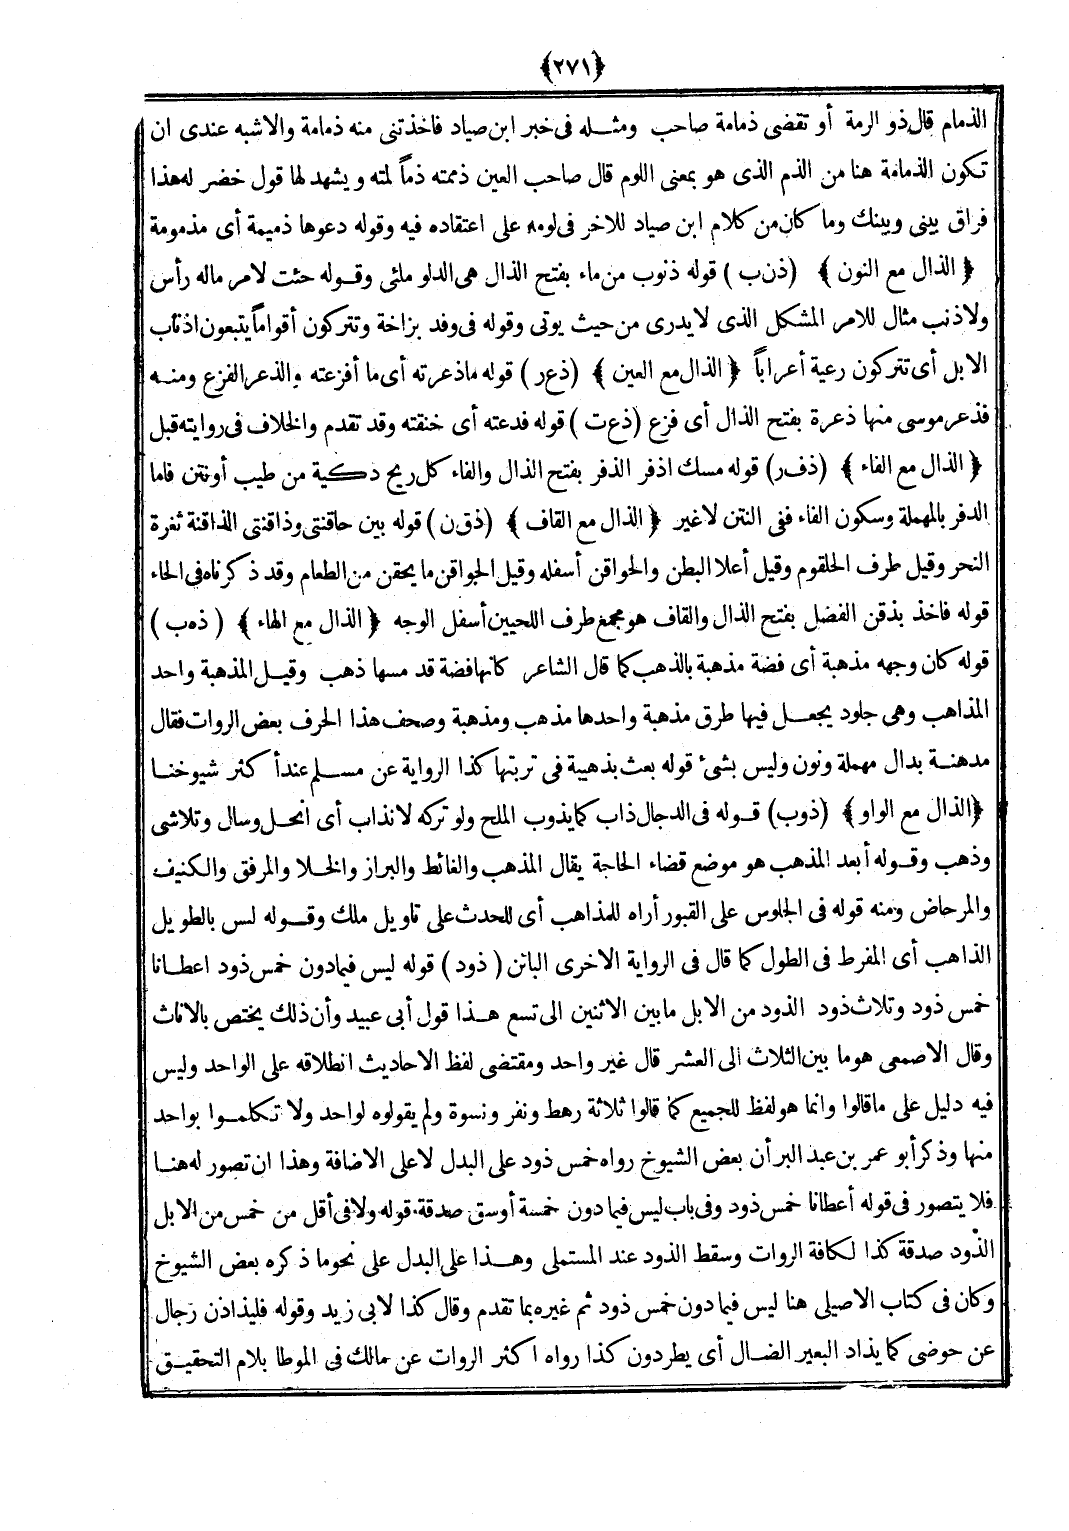 ﴿٢٧١﴾
الذمام قال ذو الرمة أو تقضى ذمامة صاحب ومثله فى خبر ابن صياد فاخذتنى منه ذمامة والاشبه عندى ان
تكون الذمامة هنا من الذم الذى هو بمعنى اللوم قال صاحب العين ذممته ذماً لمته ويشهد لها قول خضر له هذا
فراق بينى وبينك وما كان من كلام ابن صياد للاخر فى لومه على اعتقاده فيه وقوله دعوها ذميمة أى مذمومة
﴿ الذال مع النون ﴾ (ذن ب) قوله ذنوب من ماء بفتح الذال هى الدلو ملئى وقوله حئت لامر ماله رأس
ولاذنب مثال للامر المشكل الذى لا يدرى من حيث يوتى وقوله فى وفد بزاخة وتتركون أقواماً يتبعون اذناب
الابل أى تتركون رعية أعراباً ﴿ الذال مع العين ﴾ (ذع ر) قوله ماذعرته أى ما أفزعته والذعر الفزع ومنه
فذعر موسى منها ذعرة بفتح الذال أى فزع (ذع ت) قوله فدعته أى خنقته وقد تقدم والخلاف فى روايته قبل
﴿ الذال مع الفاء ﴾ (ذف ر) قوله مسك اذفر الذفر بفتح الذال والفاء كل ريح ذكية من طيب أونتن فاما
الدفر بالمهملة وسكون الفاء ففى النتن لاغير ﴿ الذال مع القاف ﴾ (ذق ن) قوله بين حاقنتى وذاقنتى الذاقنة ثغرة
النحر وقيل طرف الحلقوم وقيل أعلا البطن والحواقن أسفله وقيل الحواقن ما يحقن من الطعام وقد ذكرناه فى الحاء
قوله فاخذ بذقن الفضل بفتح الذال والقاف هو مجمع طرف اللحيين أسفل الوجه ﴿ الذال مع الهاء ﴾ (ذه ب)
قوله كان وجهه مذهبة أى فضة مذهبة بالذهب كما قال الشاعر كانها فضة قد مسها ذهب وقيل المذهبة واحد
المذاهب وهى جلود يجعل فيها طرق مذهبة واحدها مذهب ومذهبة وصحف هذا الحرف بعض الروات فقال
مدهنة بدال مهملة ونون وليس بشئ قوله بعث بذهيبة فى تربتها كذا الرواية عن مسلم عند أكثر شيوخنا
﴿الذال مع الواو﴾ (ذوب) قوله فى الدجال ذاب كما يذوب الملح ولو تركه لانذاب أى انحل وسال وتلاشى
وذهب وقوله أبعد المذهب هو موضع قضاء الحاجة يقال المذهب والغائط والبراز والخلا والمرفق والكنيف
والمرحاض ومنه قوله فى الجلوس على القبور أراه للمذاهب أى للحدث على تاويل ملك وقوله لس بالطويل
الذاهب أى المفرط فى الطول كما قال فى الرواية الاخرى البائن (ذود) قوله ليس فيمادون خمس ذود اعطانا
خمس ذود وثلاث ذود الذود من الابل مابين الاثنين الى تسع هذا قول أبى عبيد وأن ذلك يختص بالاناث
وقال الاصمعى هو ما بين الثلاث الى العشر قال غير واحد ومقتضى لفظ الاحاديث انطلاقه على الواحد وليس
فيه دليل على ماقالوا وانما هو لفظ للجميع كما قالوا ثلاثة رهط ونفر ونسوة ولم يقولوه لواحد ولا تكلموا بواحد
منها وذكر أبو عمر بن عبد البر أن بعض الشيوخ رواه خمس ذود على البدل لا على الاضافة وهذا ان تصور له هنا
فلا يتصور فى قوله أعطانا خمس ذود وفى باب ليس فيما دون خمسة أوسق صدقة قوله ولا فى أقل من خمس من الابل
الذود صدقة كذا لكافة الروات وسقط الذود عند المستملى وهذا على البدل على نحو ما ذكره بعض الشيوخ
وكان فى كتاب الاصيلى هنا ليس فيما دون خمس ذود ثم غيره بما تقدم وقال كذا لابى زيد وقوله فليذادن رجال
عن حوضى كما يذاد البعير الضال أى يطردون كذا رواه اكثر الروات عن مالك فى الموطا بلام التحقيق